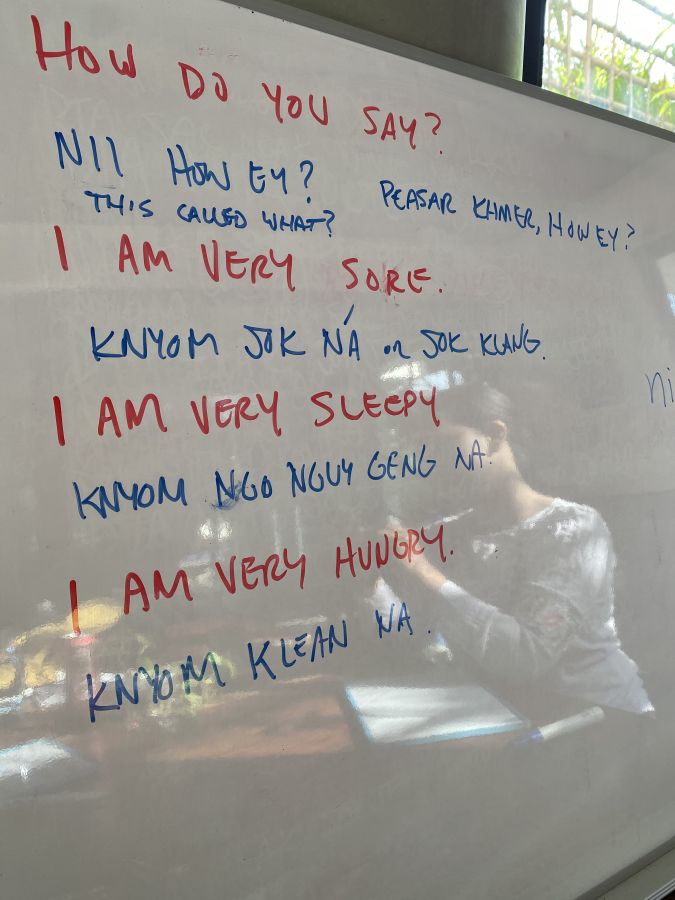 HOW DO YOU SAY?
NII HOW EY?
THIS CALLED WHAT?
PEASAR KHMER, HOW EY?
I AM VERY SORE.
KNYOM JOK NÁ or JOK KLANG.
I AM VERY SLEEPY
KNYOM NGO NGUY GENG NA.
I AM VERY HUNGRY.
KNYOM KLEAN NA.
ni